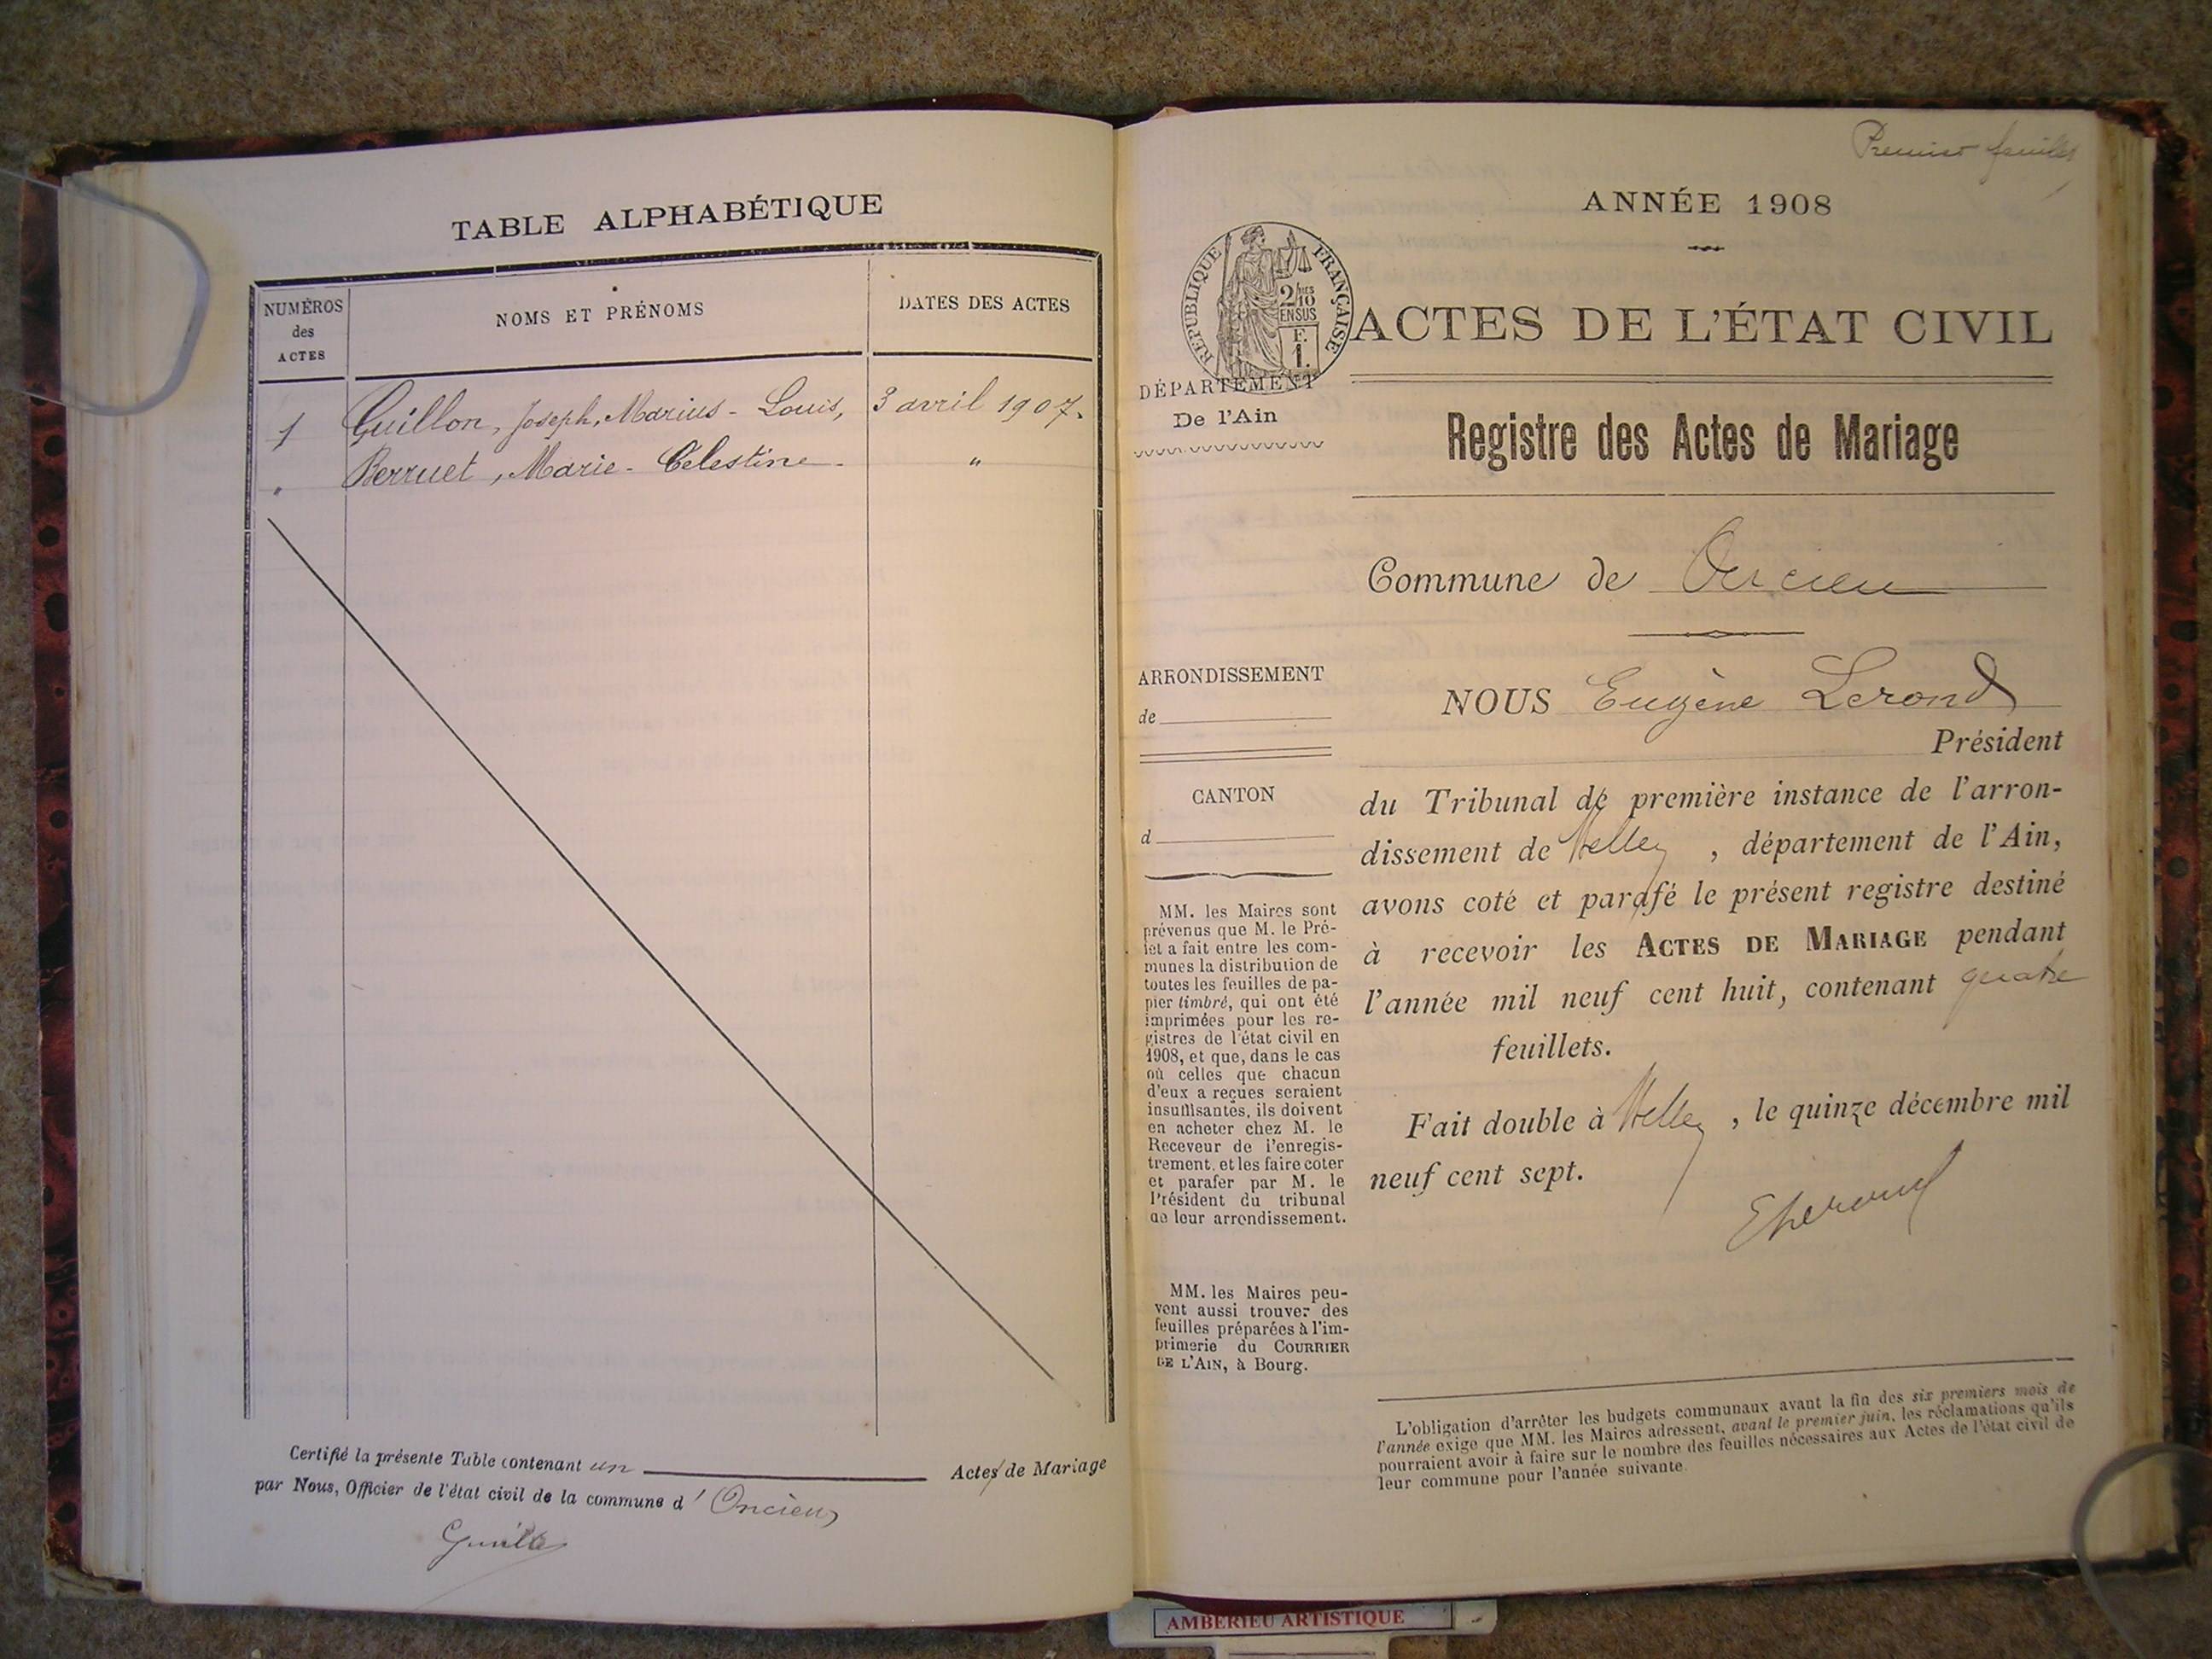 TABLE ALPHABÉTIQUE
NUMÉROS
des
ACTES
NOMS ET PRÉNOMS
DATES DES ACTES
1
Guillon, Joseph, Marius - Louis,
3 avril 1907.
Berruet, Marie - Célestine -
"
Certifié la présente Table contenant un Actes de Mariage
par Nous, Officier de l'état civil de la commune d' Oncieu
Premier feuillet
ANNÉE 1908
RÉPUBLIQUE FRANÇAISE
2/10 EN SUS
F. 1.
ACTES DE L'ÉTAT CIVIL
DÉPARTEMENT
De l'Ain
Registre des Actes de Mariage
Commune de Oncieu
ARRONDISSEMENT
de
CANTON
d
MM. les Maires sont
prévenus que M. le Pré-
fet a fait entre les com-
munes la distribution de
toutes les feuilles de pa-
pier timbré, qui ont été
imprimées pour les re-
gistres de l'état civil en
1908, et que, dans le cas
où celles que chacun
d'eux a reçues seraient
insuffisantes, ils doivent
en acheter chez M. le
Receveur de l'enregis-
trement, et les faire coter
et parafer par M. le
Président du tribunal
de leur arrondissement.
MM. les Maires peu-
vent aussi trouver des
feuilles préparées à l'im-
primerie du COURRIER
DE L'AIN, à Bourg.
NOUS Eugène Lerond
Président
du Tribunal de première instance de l'arron-
dissement de Belley, département de l'Ain,
avons coté et parafé le présent registre destiné
à recevoir les ACTES DE MARIAGE pendant
l'année mil neuf cent huit, contenant quatre
feuillets.
Fait double à Belley, le quinze décembre mil
neuf cent sept.
ELerond
L'obligation d'arrêter les budgets communaux avant la fin des six premiers mois de
l'année exige que MM. les Maires adressent, avant le premier juin, les réclamations qu'ils
pourraient avoir à faire sur le nombre des feuilles nécessaires aux Actes de l'état civil de
leur commune pour l'année suivante.
AMBERIEU ARTISTIQUE